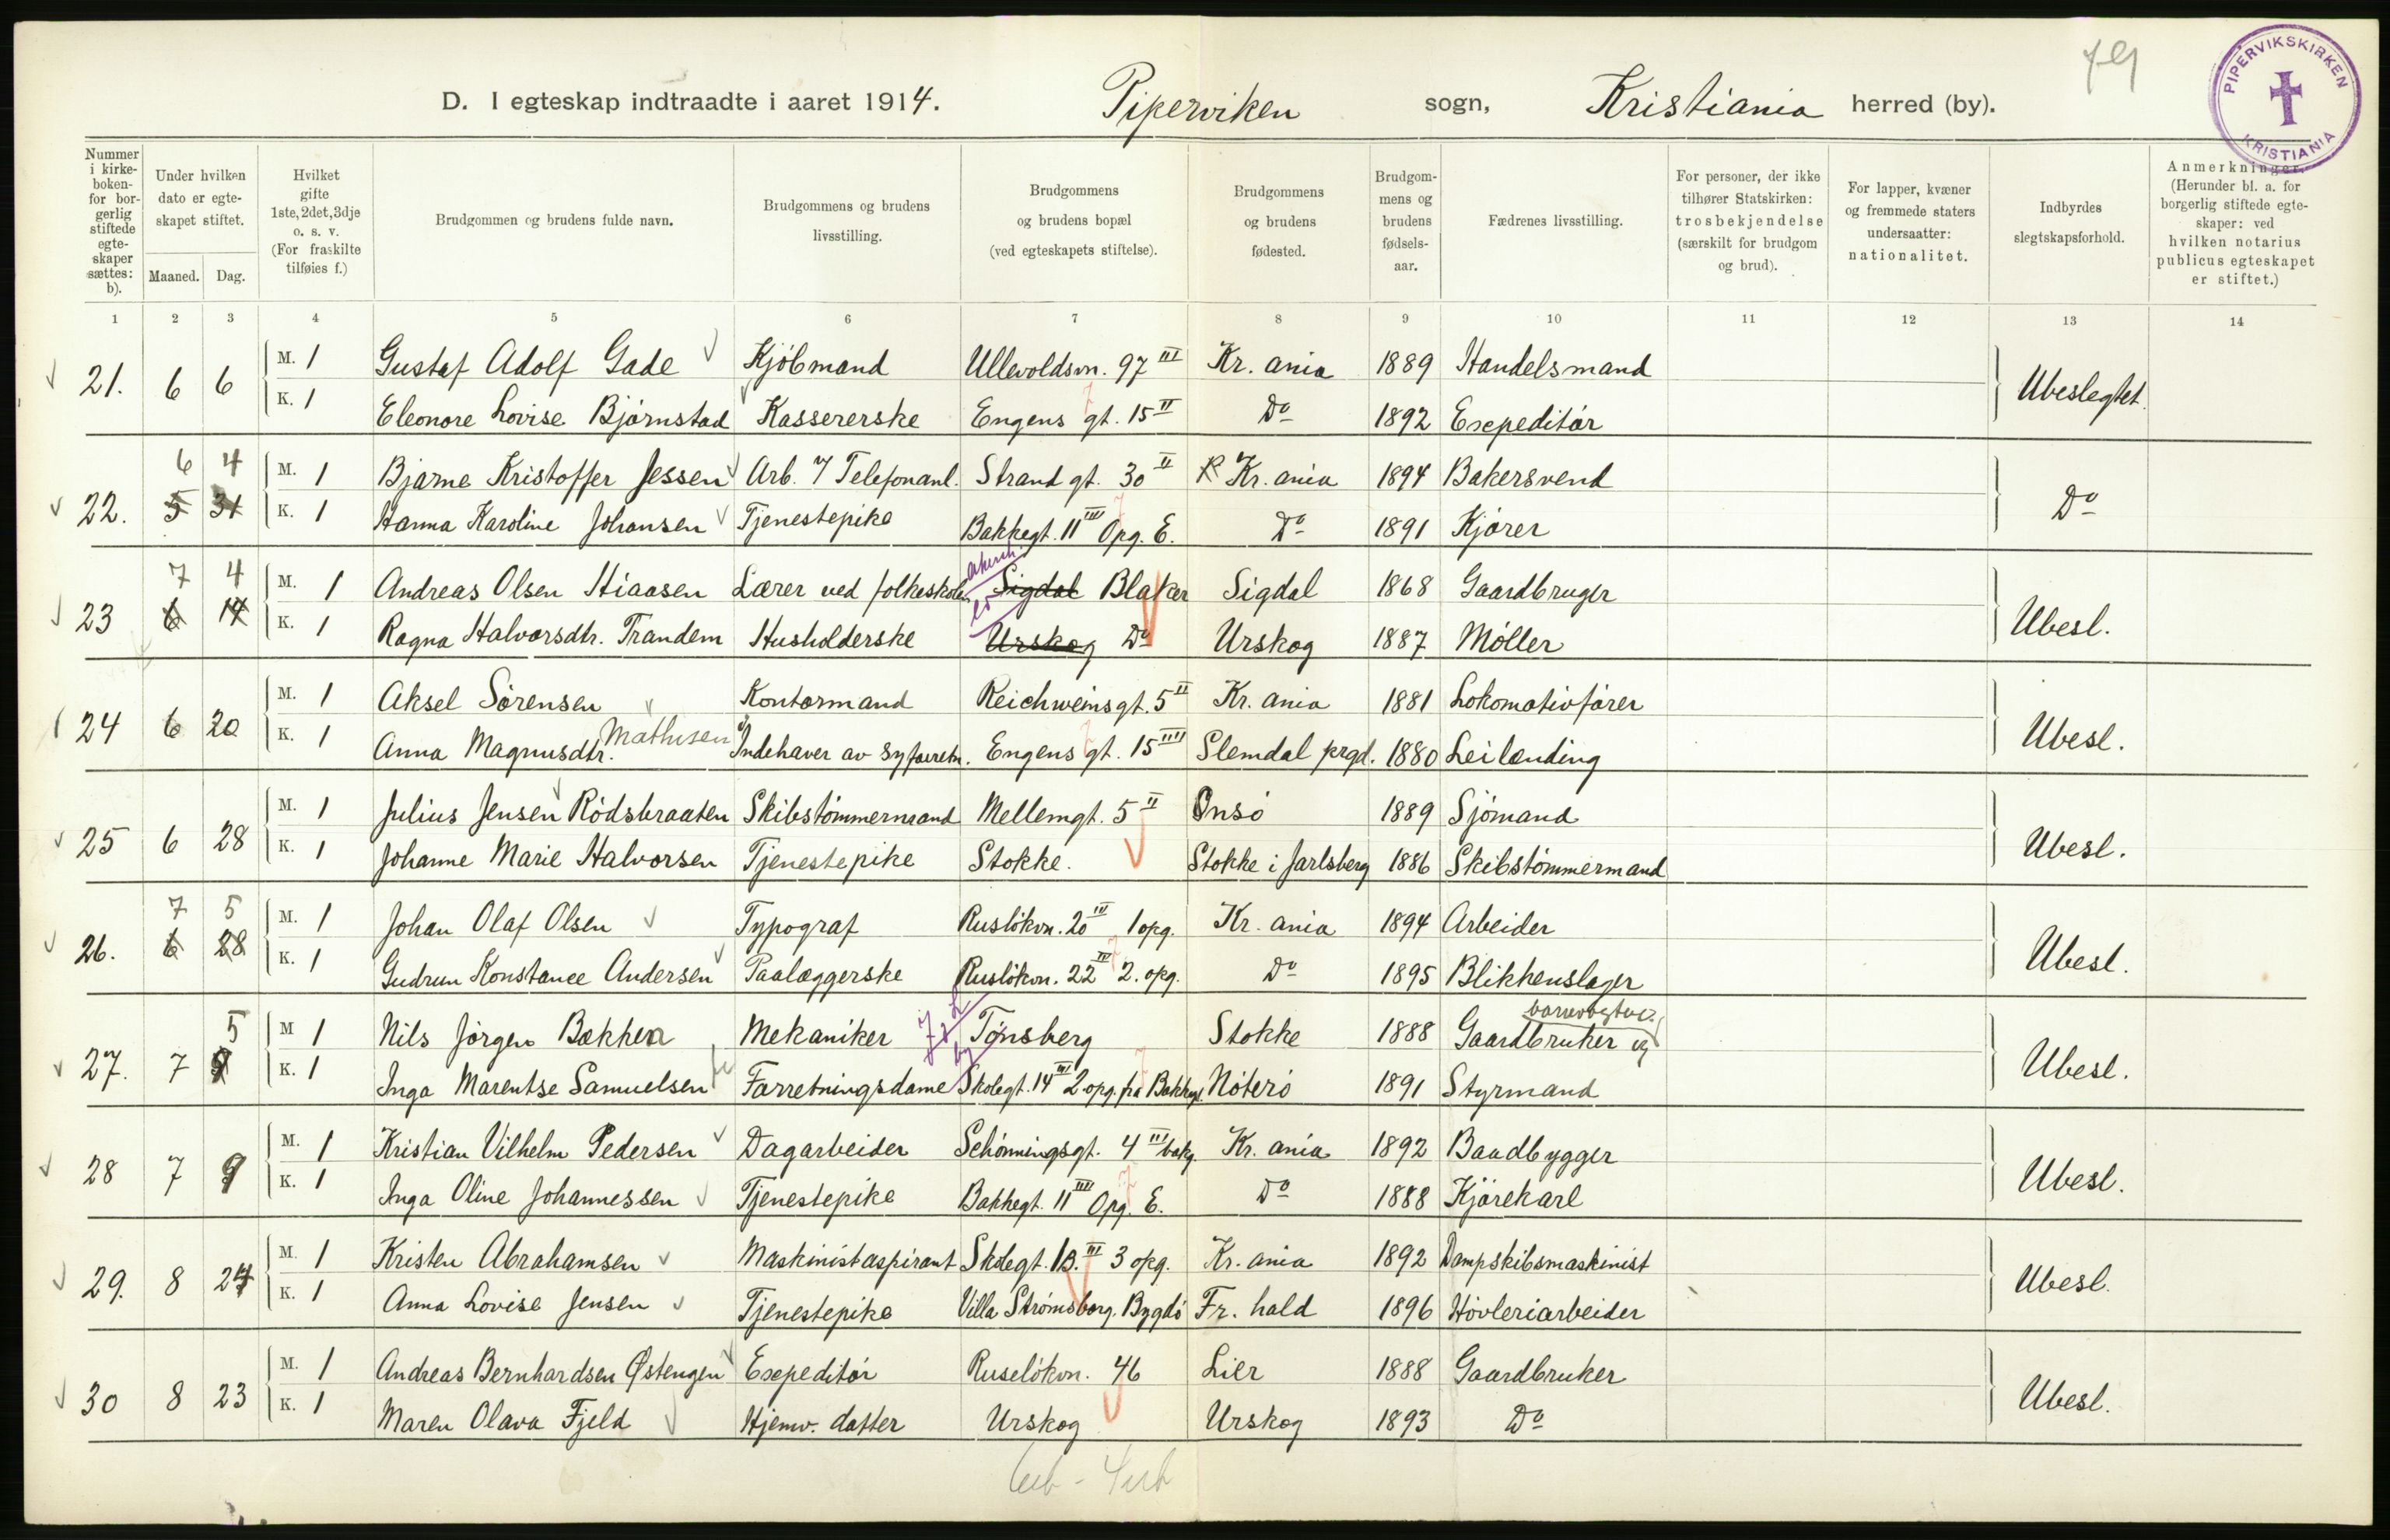 79
PIPERVIKSKIRKEN KRISTIANIA
D. I egteskap indtraadte i aaret 1914. Piperviken sogn, Kristiania herred (by).
Nummer i kirkeboken- for borgerlig stiftede egteskaper sættes: b). | Under hvilken dato er egteskapet stiftet. Maaned. Dag. | Hvilket gifte 1ste, 2det, 3dje o. s. v. (For fraskilte tilføies f.) | Brudgommen og brudens fulde navn. | Brudgommens og brudens livsstilling. | Brudgommens og brudens bopæl (ved egteskapets stiftelse). | Brudgommens og brudens fødested. | Brudgommens og brudens fødselsaar. | Fædrenes livsstilling. | For personer, der ikke tilhører Statskirken: trosbekjendelse (særskilt for brudgom og brud). | For lapper, kvæner og fremmede staters undersaatter: nationalitet. | Indbyrdes slegtskapsforhold. | Anmerkninger. (Herunder bl. a. for borgerlig stiftede egteskaper: ved hvilken notarius publicus egteskapet er stiftet.)
1 2 3 4 5 6 7 8 9 10 11 12 13 14
21. 6 6 M. 1 Gustaf Adolf Gade Kjöbmand Ullevoldsvn. 97 III Kr.ania 1889 Handelsmand Ubeslegtet
K. 1 Eleonore Lovise Björnstad Kassererske Engens gt. 15 II Do 1892 Expeditör
6 4
22. 5 31 M. 1 Bjarne Kristoffer Jessen Arb. v/ Telefonanl. Strandgt. 30 II Kr.ania 1894 Bakersvend Do
K. 1 Hanna Karoline Johansen Tjenestepike Bakkegt. 11 III Opg. E. Do 1891 Kjörer
7 4
23 6 14 M. 1 Andreas Olsen Hiaasen Lærer ved folkeskolen Sigdal Blaker Sigdal 1868 Gaardbruger Ubesl.
K. 1 Ragna Halvorsdtr. Trandem Husholderske Urskog Do Urskog 1887 Möller
24 6 20 M. 1 Aksel Sörensen Kontormand Reichweinsgt. 5 II Kr.ania 1881 Lokomotivförer Ubesl.
K. 1 Anna Magnusdtr. Mathisen Indehaver av syforretn. Engens gt. 15 IIII Slemdal prgd. 1880 Leilending
25 6 28 M. 1 Julius Jensen Rödsbraaten Skibstömmermand Mellemgt. 5 II Onsö 1889 Sjömand Ubesl.
K. 1 Johanne Marie Halvorsen Tjenestepike Stokke. Stokke i Jarlsberg 1886 Skibstömmermand
7 5
26. 6 28 M. 1 Johan Olaf Olsen Typograf Ruslökvn. 20 IV 1 opg. Kr.ania 1894 Arbeider Ubesl.
K. 1 Gudrun Konstance Andersen Paalæggerske Ruslökvn. 22 IV 2. opg. Do 1895 Blikkenslager
5
27. 7 9 M 1 Nils Jörgen Bakken Mekaniker Tønsberg Stokke 1888 Gaardbruker og Ubesl.
K. 1 Inga Marentse Samuelsen Forretningsdame Skolegt. 14 III 2 opg. fra Bakkegt. Nöterö 1891 Styrmand
28 7 9 M. 1 Kristian Vilhelm Pedersen Dagarbeider Schönningsgt. 4 III bakg. Kr.ania 1892 Baadbygger Ubesl.
K. 1 Inga Oline Johannessen Tjenestepike Bakkegt. 11 IIII Opg. E. Do 1888 Kjörekarl
29. 8 24 M. 1 Kristen Abrahamsen Maskinistaspirant Skolegt. 13. III 3 opg. Kr.ania 1892 Dampskibsmaskinist Ubesl.
K. 1 Anna Lovise Jensen Tjenestepike Villa Strömsborg. Bygdö Fr. hald 1896 Hövleriarbeider
30 8 23 M. 1 Andreas Bernhardsen Østengen Expeditör Ruselökvn. 46 Lier 1888 Gaardbruker Ubesl.
K. 1 Maren Olava Fjeld Hjemv. datter Urskog Urskog 1893 Do